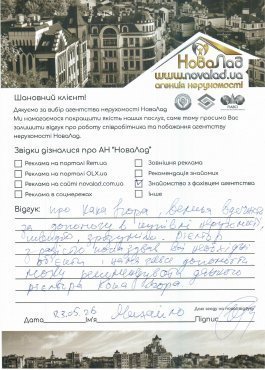 НоваЛад
www.novalad.ua
агенція нерухомості
Шановний клієнт!
Дякуємо за вибір агентства нерухомості НоваЛад
Ми намагаємося покращити якість наших послуг, саме тому просимо Вас
залишити відгук про роботу співробітника та побажання агентству
нерухомості НоваЛад.
Звідки дізналися про АН "НоваЛад"
Реклама на порталі Rem.ua
Зовнішня реклама
Реклама на порталі OLX.ua
Рекомендація знайомих
Реклама на сайті novalad.com.ua
Знайомство з фахівцем агентства
Реклама в соцмережах
Інше
Відгук: про Каха Ігора,
за допомогу в купівлі
швидко зрозумів
з радістю показував всі необхідні
об'єкти і намагався допомогти
можу рекомендувати даного
ріелтора Каха Ігора.
Дата 23.05.26 Ім'я Михайло Підпис